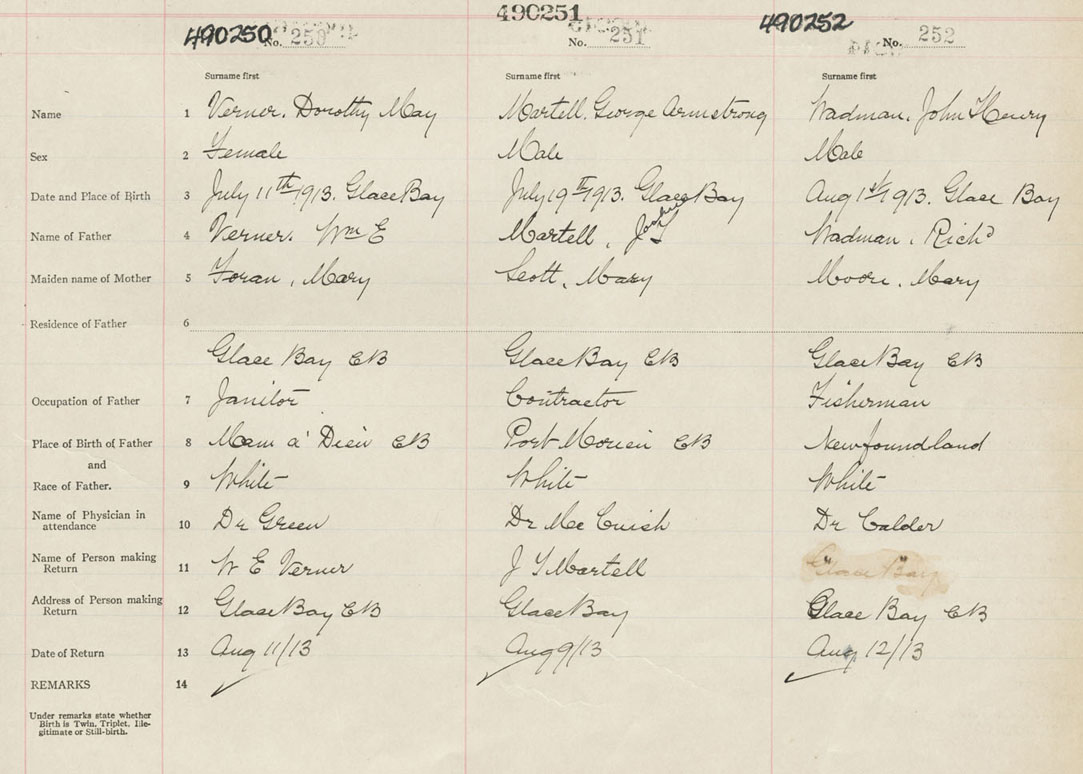 490250 490251 490252
No. 250 No. 251 No. 252
Surname first Surname first Surname first
Name 1 Verner, Dorothy May Martell, George Armstrong Wadman, John Henry
Sex 2 Female Male Male
Date and Place of Birth 3 July 11th 1913. Glace Bay July 19th 1913. Glace Bay Aug 1st 1913. Glace Bay
Name of Father 4 Verner. Wm E Martell, J Wadman, Richd
Maiden name of Mother 5 Foran, Mary Scott, Mary Moore, Mary
Residence of Father 6
Glace Bay CB Glace Bay CB Glace Bay CB
Occupation of Father 7 Janitor Contractor Fisherman
Place of Birth of Father 8 Mam a' Dieu CB Port Morien CB Newfoundland
and
Race of Father. 9 White White White
Name of Physician in
attendance 10 Dr Green Dr Mc Cuish Dr Calder
Name of Person making
Return 11 W E Verner J S Martell Glace Bay
Address of Person making
Return 12 Glace Bay CB Glace Bay Glace Bay CB
Date of Return 13 Aug 11/13 Aug 9/13 Aug 12/13
REMARKS 14
Under remarks state whether
Birth is Twin, Triplet, Ille-
gitimate or Still-birth.